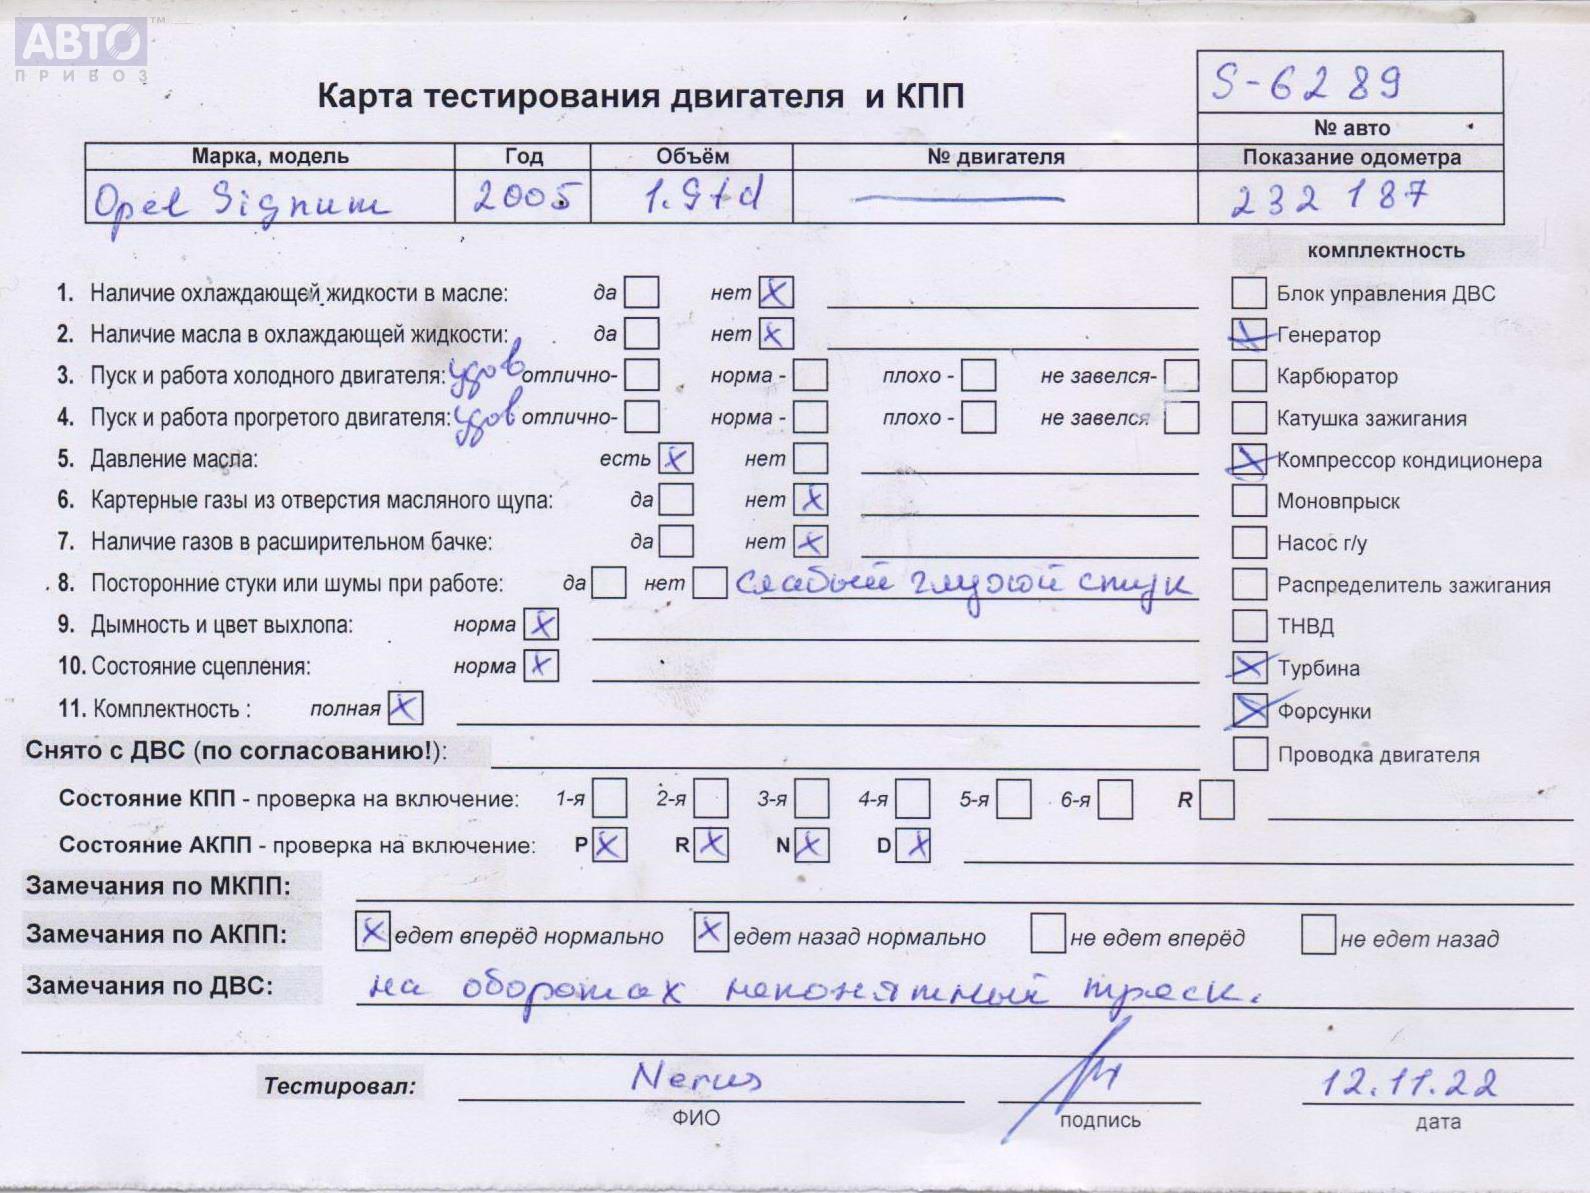 АВТО™
ПРИВОЗ
S-6289
Карта тестирования двигателя и КПП
№ авто
Марка, модель Год Объём № двигателя Показание одометра
Opel Signum 2005 1.9td — 232 187
комплектность
1. Наличие охлаждающей жидкости в масле: да нет X Блок управления ДВС
2. Наличие масла в охлаждающей жидкости: да нет X X Генератор
3. Пуск и работа холодного двигателя: удов отлично- норма - плохо - не завелся- Карбюратор
4. Пуск и работа прогретого двигателя: удов отлично- норма - плохо - не завелся Катушка зажигания
5. Давление масла: есть X нет X Компрессор кондиционера
6. Картерные газы из отверстия масляного щупа: да нет X Моновпрыск
7. Наличие газов в расширительном бачке: да нет X Насос г/у
8. Посторонние стуки или шумы при работе: да нет слабый глухой стук Распределитель зажигания
9. Дымность и цвет выхлопа: норма X ТНВД
10. Состояние сцепления: норма X X Турбина
11. Комплектность : полная X X Форсунки
Снято с ДВС (по согласованию!): Проводка двигателя
Состояние КПП - проверка на включение: 1-я 2-я 3-я 4-я 5-я 6-я R
Состояние АКПП - проверка на включение: P X R X N X D X
Замечания по МКПП:
Замечания по АКПП: X едет вперёд нормально X едет назад нормально не едет вперёд не едет назад
Замечания по ДВС: на оборотах непонятный треск.
Тестировал: 12.11.22
ФИО подпись дата